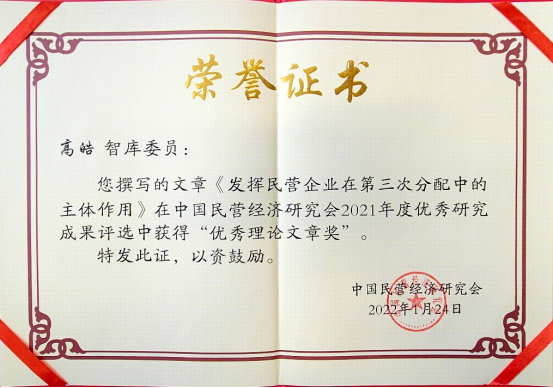 荣誉证书
高皓 智库委员：
您撰写的文章《发挥民营企业在第三次分配中的
主体作用》在中国民营经济研究会2021年度优秀研究
成果评选中获得“优秀理论文章奖”。
特发此证，以资鼓励。
中国民营经济研究会
2022年1月24日